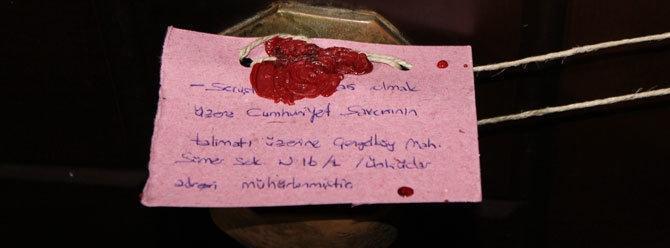 olmak
üzere Cumhuriyet Savcısının
talimatı üzerine Çengelköy Mah.
Sümer Sok. N 16/1 /Üsküdar
adresi mühürlenmiştir